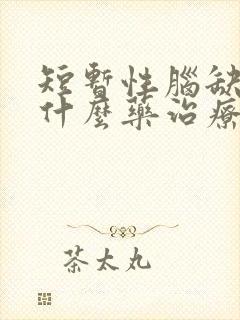 短暫性腦缺
什麼藥治療
茶太丸